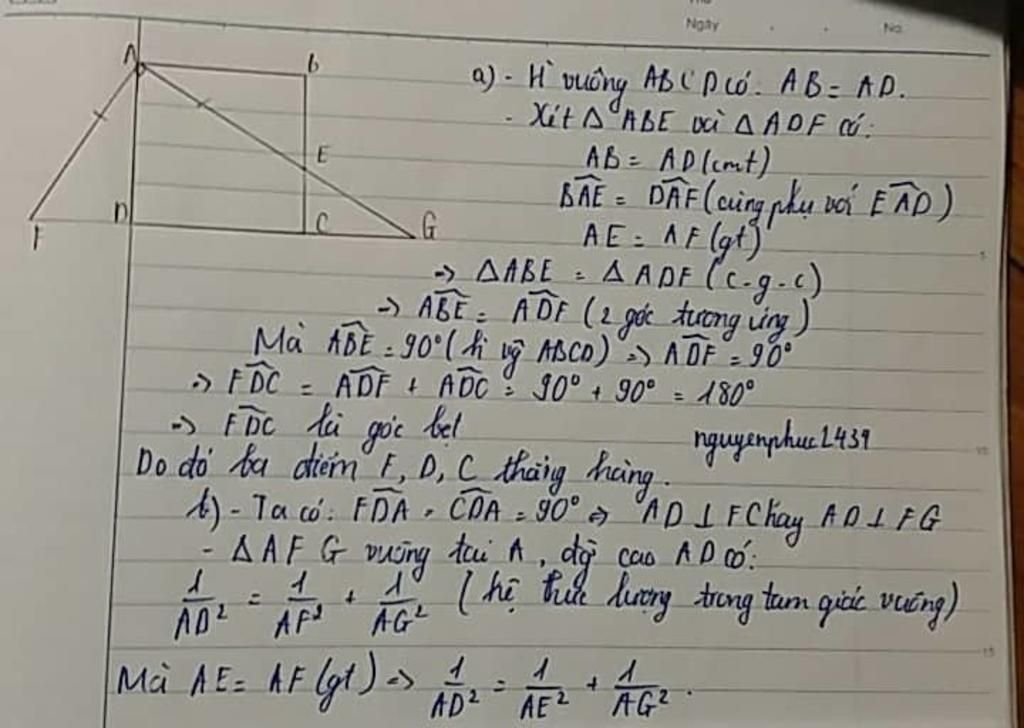 Ngày
No.
A
B
E
F
D
C
G
a) - H vuông ABCD có: AB = AD.
- Xét Δ ABE và Δ ADF có:
AB = AD (cmt)
B̂AE = D̂AF (cùng phụ với ÊAD)
AE = AF (gt)
=> Δ ABE = Δ ADF (c-g-c)
=> ÂBE = ÂDF (2 góc tương ứng)
Mà ÂBE = 90° (h vg ABCD) => ÂDF = 90°
=> F̂DC = ÂDF + ÂDC = 90° + 90° = 180°
=> F̂DC là góc bẹt
nguyenphuc1439
Do đó ba điểm F, D, C thẳng hàng.
b) - Ta có: F̂DA = ĈDA = 90° => AD ⊥ FC hay AD ⊥ FG
- Δ AFG vuông tại A, đg cao AD có:
1/AD² = 1/AF² + 1/AG² (hệ thức lượng trong tam giác vuông)
Mà AE = AF (gt) => 1/AD² = 1/AE² + 1/AG².